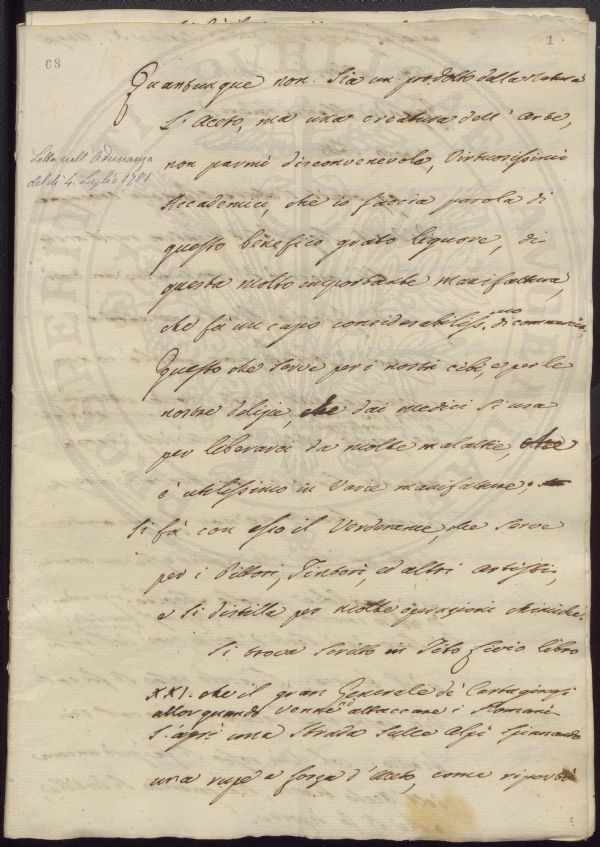 1.
68
Quantunque non sia un prodotto della Natura
L'Aceto, ma una creatura dell'arte,
Letta nell'Adunanza
del dì 4. Luglio 1781
non parmi disconvenevole, Virtuosissimi
Accademici, che io faccia parola di
questo benefico grato liquore, di
questa molto importante manifattura,
che fà un capo considerabiliss.mo di commercio.
Questo che serve per i nostri cibi, e per le
nostre delizie, che dai medici si usa
per liberarci da molte malattie, che
è utilissimo in varie manifatture;
Si fà con esso il Verderame, che serve
per i Pittori, Tintori, ed altri artisti,
e si distilla per molte operazioni chimiche.
Si trova scritto in Tito Livio libro
XXI. che il gran Generale de' Cartaginesi
allor quando venne ad attaccare i Romani
s'aprì una strada sulle Alpi spianando
una rupe a forza d'Aceto, come